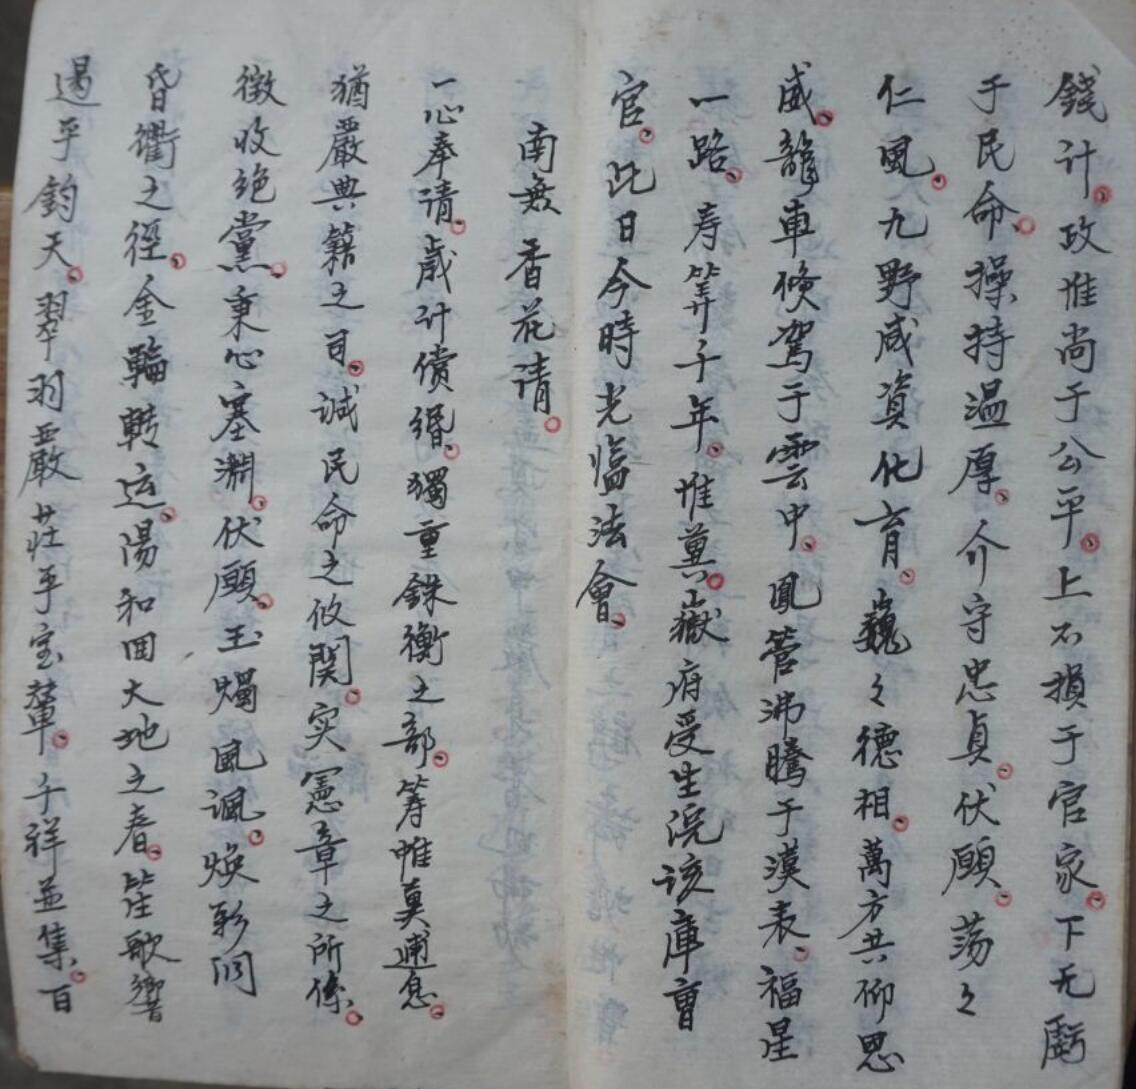 錢計、政惟尚于公平。上不損于官家。下无虧
于民命。操持温厚、介守忠貞。伏願、蕩々
仁風。九野咸資化育。巍々德相。萬方共仰恩
威。龍車倏駕于雲中、鳳管沸騰于漢表、福星
一路。寿筭千年。惟奠。嶽府受生院該庫曹
官。此日今時光臨法會、
南無香花请。
一心奉请。歲计償緡、獨重銖衡之部。筹帷莫逋息。
猶嚴典籍之司。誠民命之攸関。实憲章之所係。
徵收絶黨。秉心塞淵。伏願。玉燭風渢。煥彩
昏衢之徑。金輪轉运。陽和回大地之春。笙歌響
遏乎鈞天。翠羽嚴莊乎宝輦。千祥並集。百